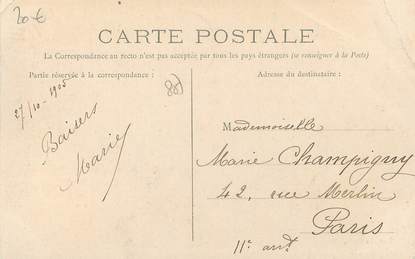 20€
CARTE POSTALE
La Correspondance au recto n'est pas acceptée par tous les pays étrangers (se renseigner à la Poste)
Partie réservée à la correspondance :
Adresse du destinataire :
88)
27/10-1905
Baisers
Marie
Mademoiselle
Marie Champigny
42, rue Merlin
Paris
11e arrt